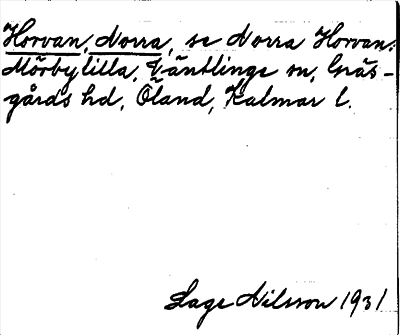 Horvan, Norra, se Norra Horvan.
Mörbylilla, Väntlinge sn, Gräs-
gårds hd, Öland, Kalmar l.
Lage Nilsson 1931